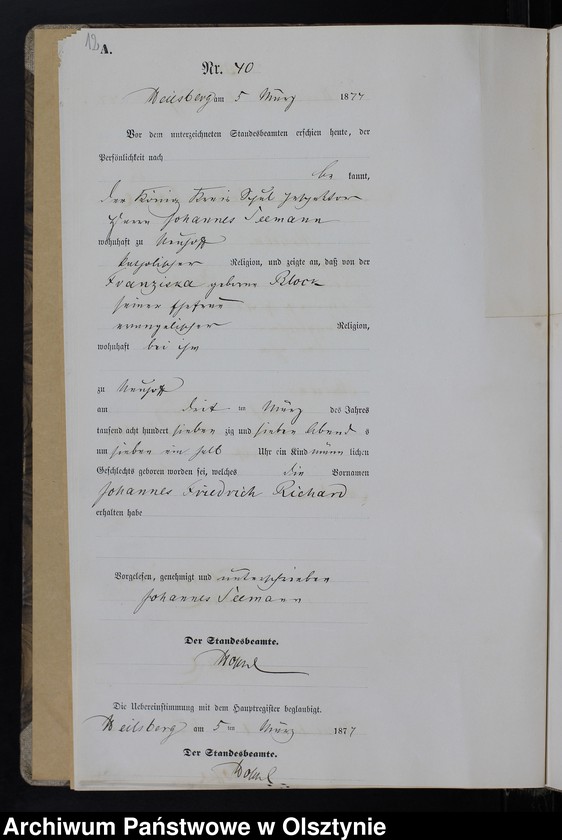 12
A.
Nr. 40
Heilsberg am 5 März 1877
Vor dem unterzeichneten Standesbeamten erschien heute, der
Persönlichkeit nach
be kannt,
der König Kreis Schul Inspektor
Herr Johannes Seemann
wohnhaft zu Neuhoff
katholischer Religion, und zeigte an, daß von der
Franziska geborne Block
seiner Ehefrau
evangelischer Religion,
wohnhaft bei ihm
zu Neuhoff
am März des Jahres
tausend acht hundert sieben zig und sieben Abend s
um sieben ein halb Uhr ein Kind männ lichen
Geschlechts geboren worden sei, welches die Vornamen
Johannes Friedrich Richard
erhalten habe
Vorgelesen, genehmigt und unterschrieben
Johannes Seemann
Der Standesbeamte.
Die Uebereinstimmung mit dem Hauptregister beglaubigt.
Heilsberg am 5 ten März 1877
Der Standesbeamte.
Archiwum Państwowe w Olsztynie